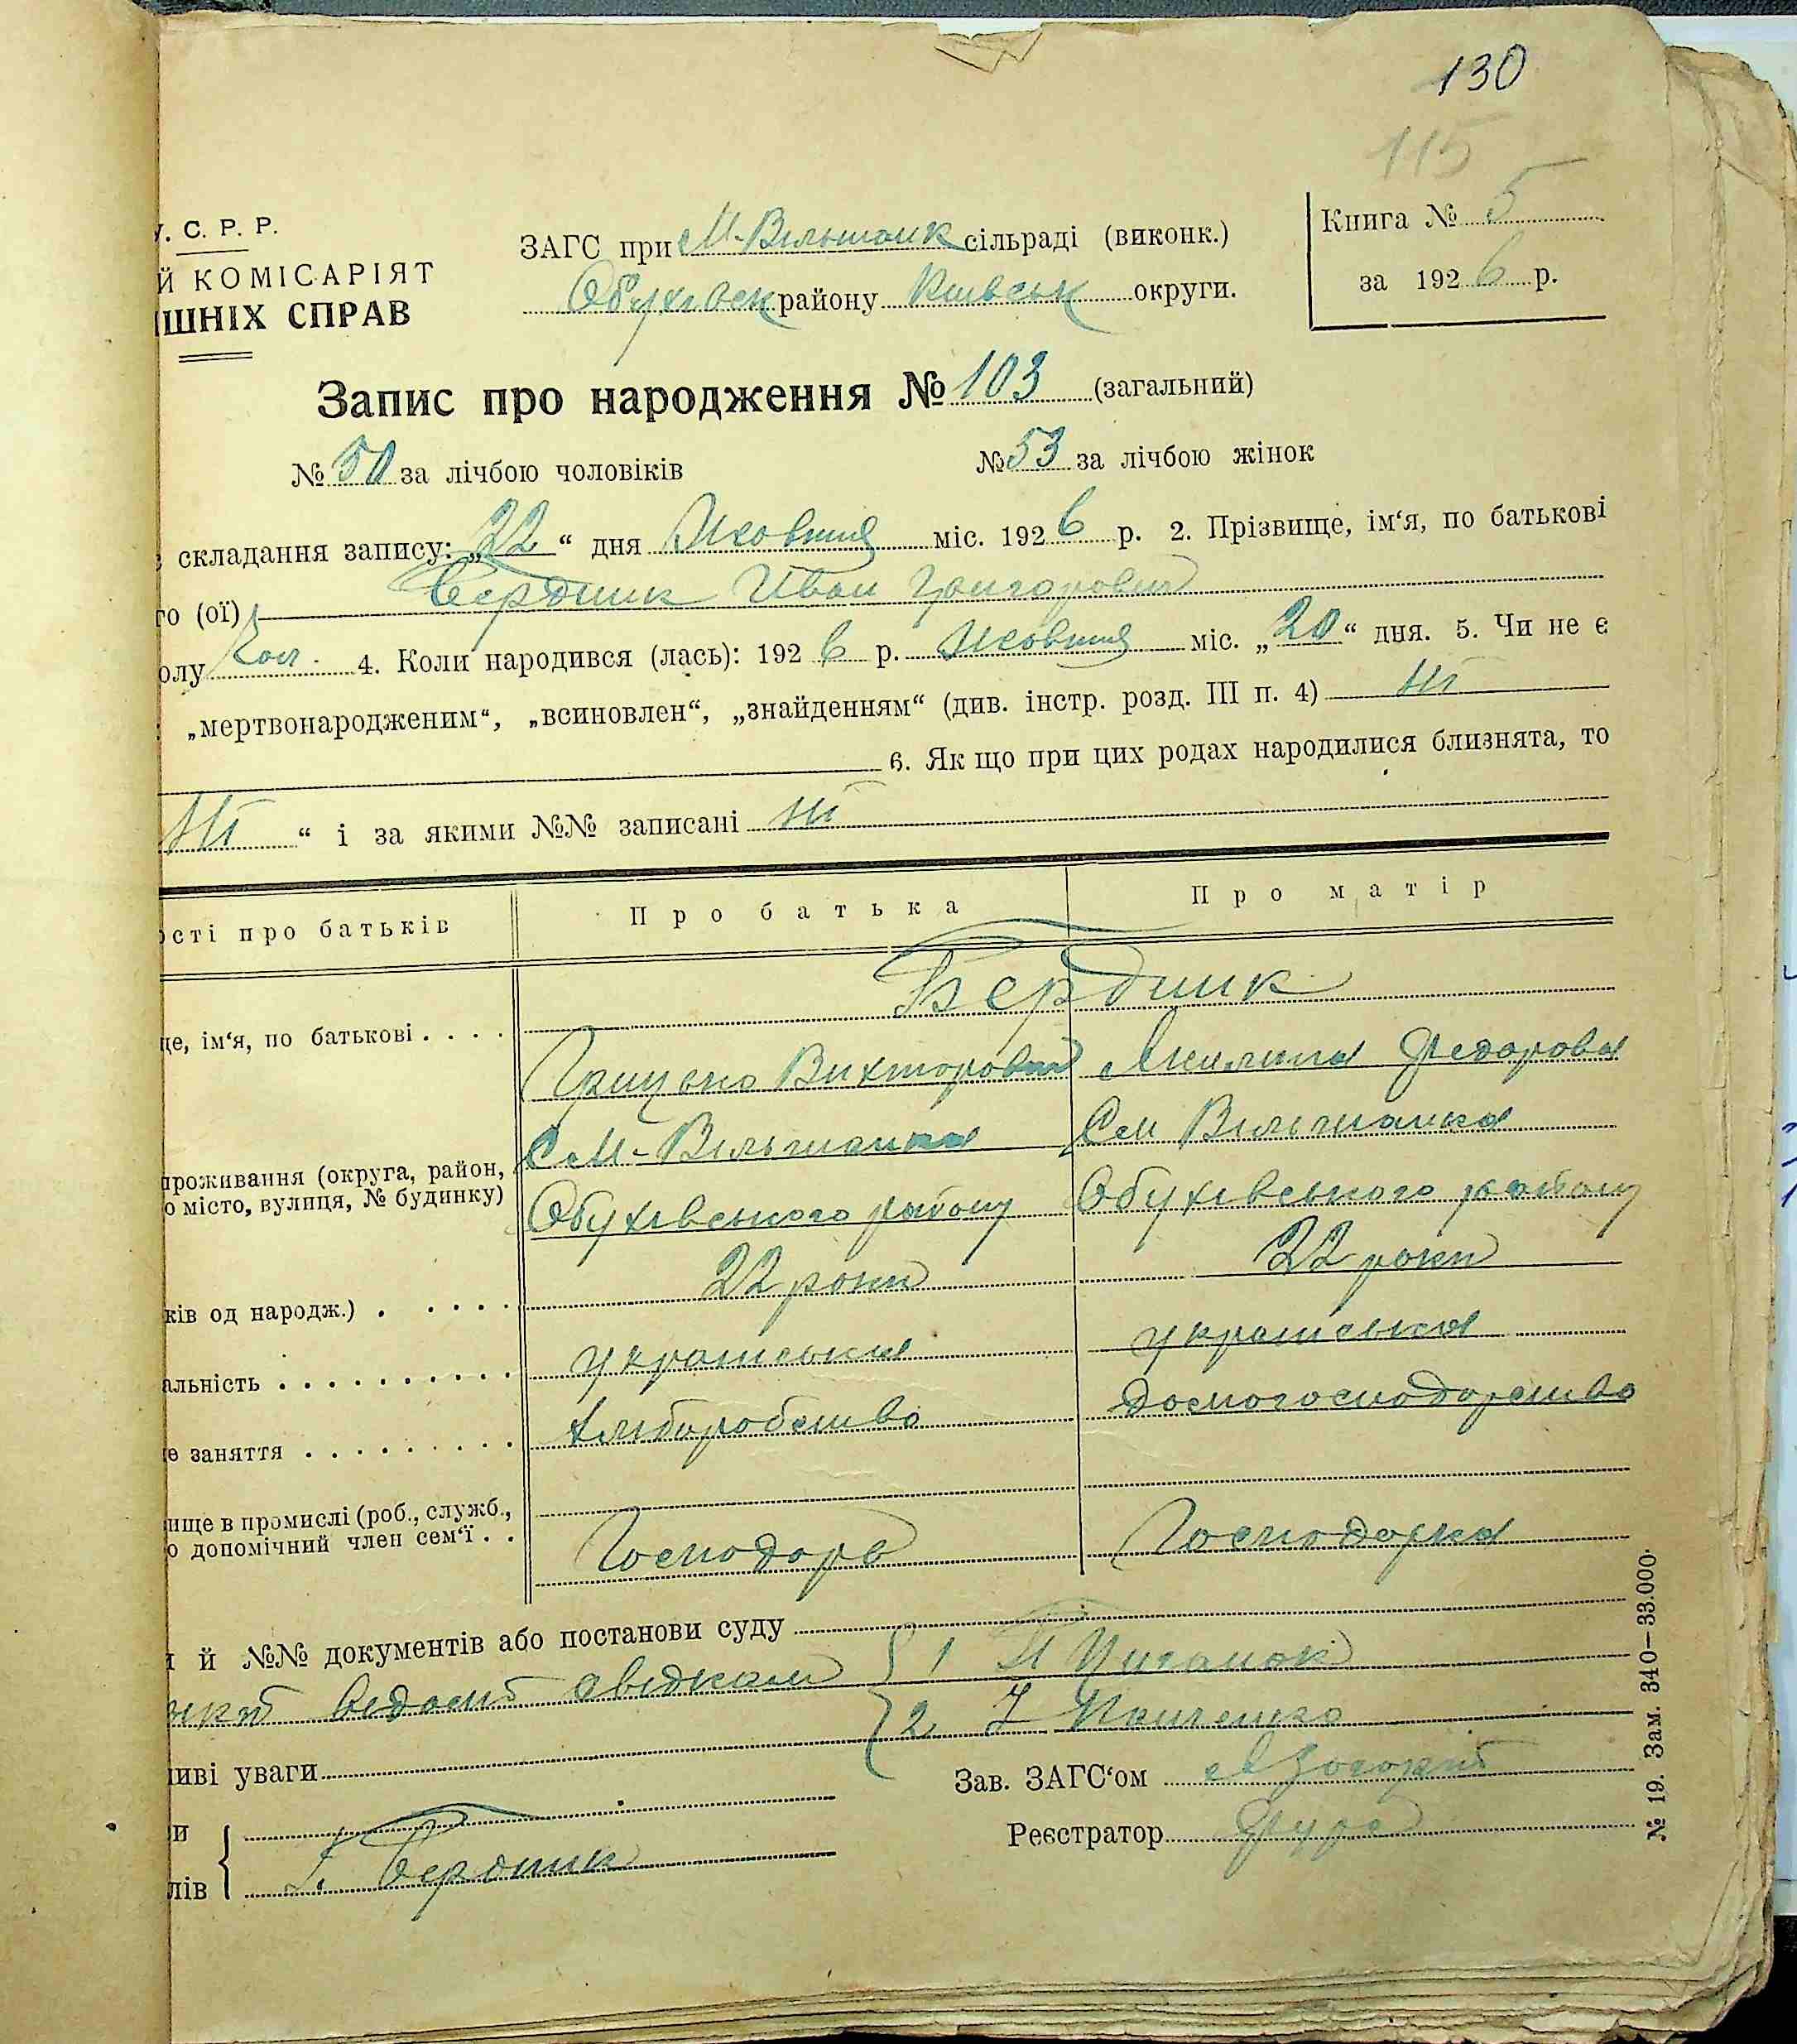 130
115
У. С. Р. Р.
Й КОМІСАРІЯТ
ІШНІХ СПРАВ
ЗАГС при М-Вільшанк сільраді (виконк.)
Обухівськ району Київськ округи.
Книга № 5
за 1926 р.
Запис про народження № 103 (загальний)
№ 50 за лічбою чоловіків № 53 за лічбою жінок
складання запису: „22“ дня Жовтня міс. 1926 р. 2. Прізвище, ім‘я, по батькові
го (ої) Бердник Иван Григорович
олу Чол. 4. Коли народився (лась): 1926 р. Жовтня міс. „20“ дня. 5. Чи не є
„мертвонародженим“, „всиновлен“, „знайденням“ (див. інстр. розд. III п. 4) Ні
6. Як що при цих родах народилися близнята, то
Ні “ і за якими №№ записані Ні
ості про батьків Про батька Про матір
Бердник
це, ім‘я, по батькові . . . .
Грицько Викторович Акилина Федорова
С М-Вільшанка С М Вільшанка
проживання (округа, район,
о місто, вулиця, № будинку)
Обухівського району Обухівського району
ків од народж.) . . . . . 22 роки 22 роки
альність . . . . . . . . . . українська українська
е заняття . . . . . . . . . хліборобство домогосподарство
ище в промислі (роб., служб.,
о допомічний член сем‘ї . . Господарь Господарка
й №№ документів або постанови суду
відомі свідкам { 1 П Циганок
2
ливі уваги
Зав. ЗАГС‘ом
и
Реєстратор
лів { Г. Бердник
№ 19. Зам. 340—33.000.